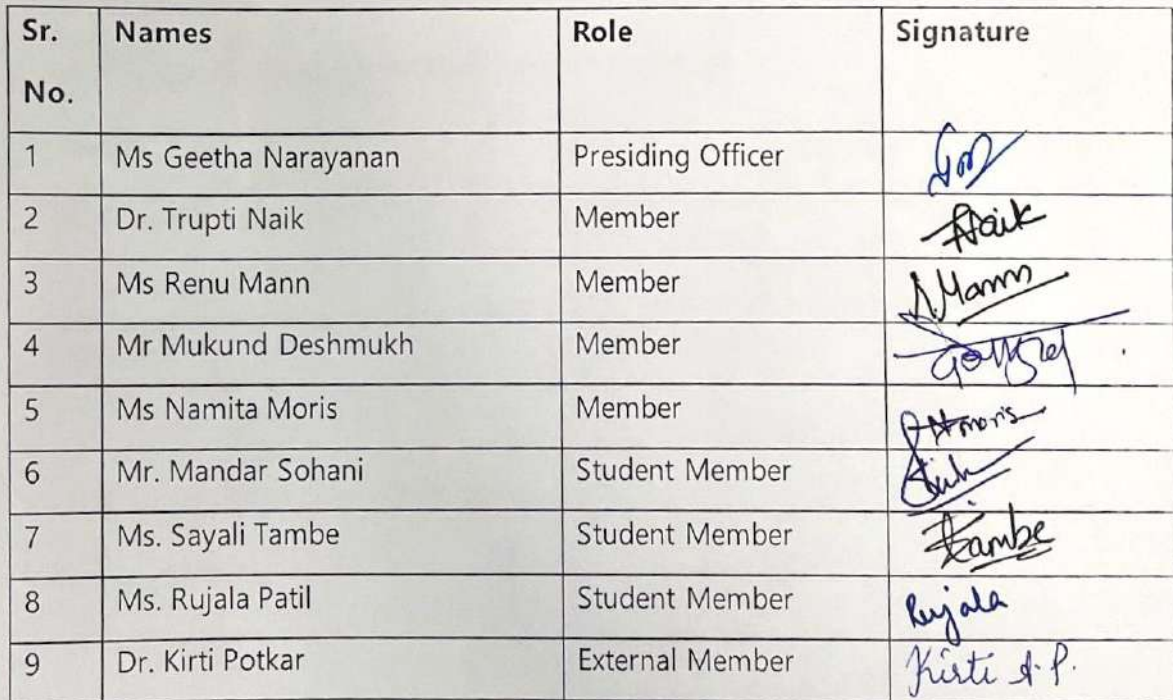 Sr. No. Names Role Signature
1 Ms Geetha Narayanan Presiding Officer
2 Dr. Trupti Naik Member Naik
3 Ms Renu Mann Member Mann
4 Mr Mukund Deshmukh Member
5 Ms Namita Moris Member Moris
6 Mr. Mandar Sohani Student Member
7 Ms. Sayali Tambe Student Member Tambe
8 Ms. Rujala Patil Student Member Rujala
9 Dr. Kirti Potkar External Member Kirti A. P.